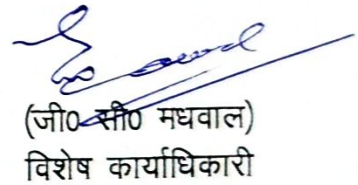 (जी0 सी0 मधवाल)
विशेष कार्याधिकारी